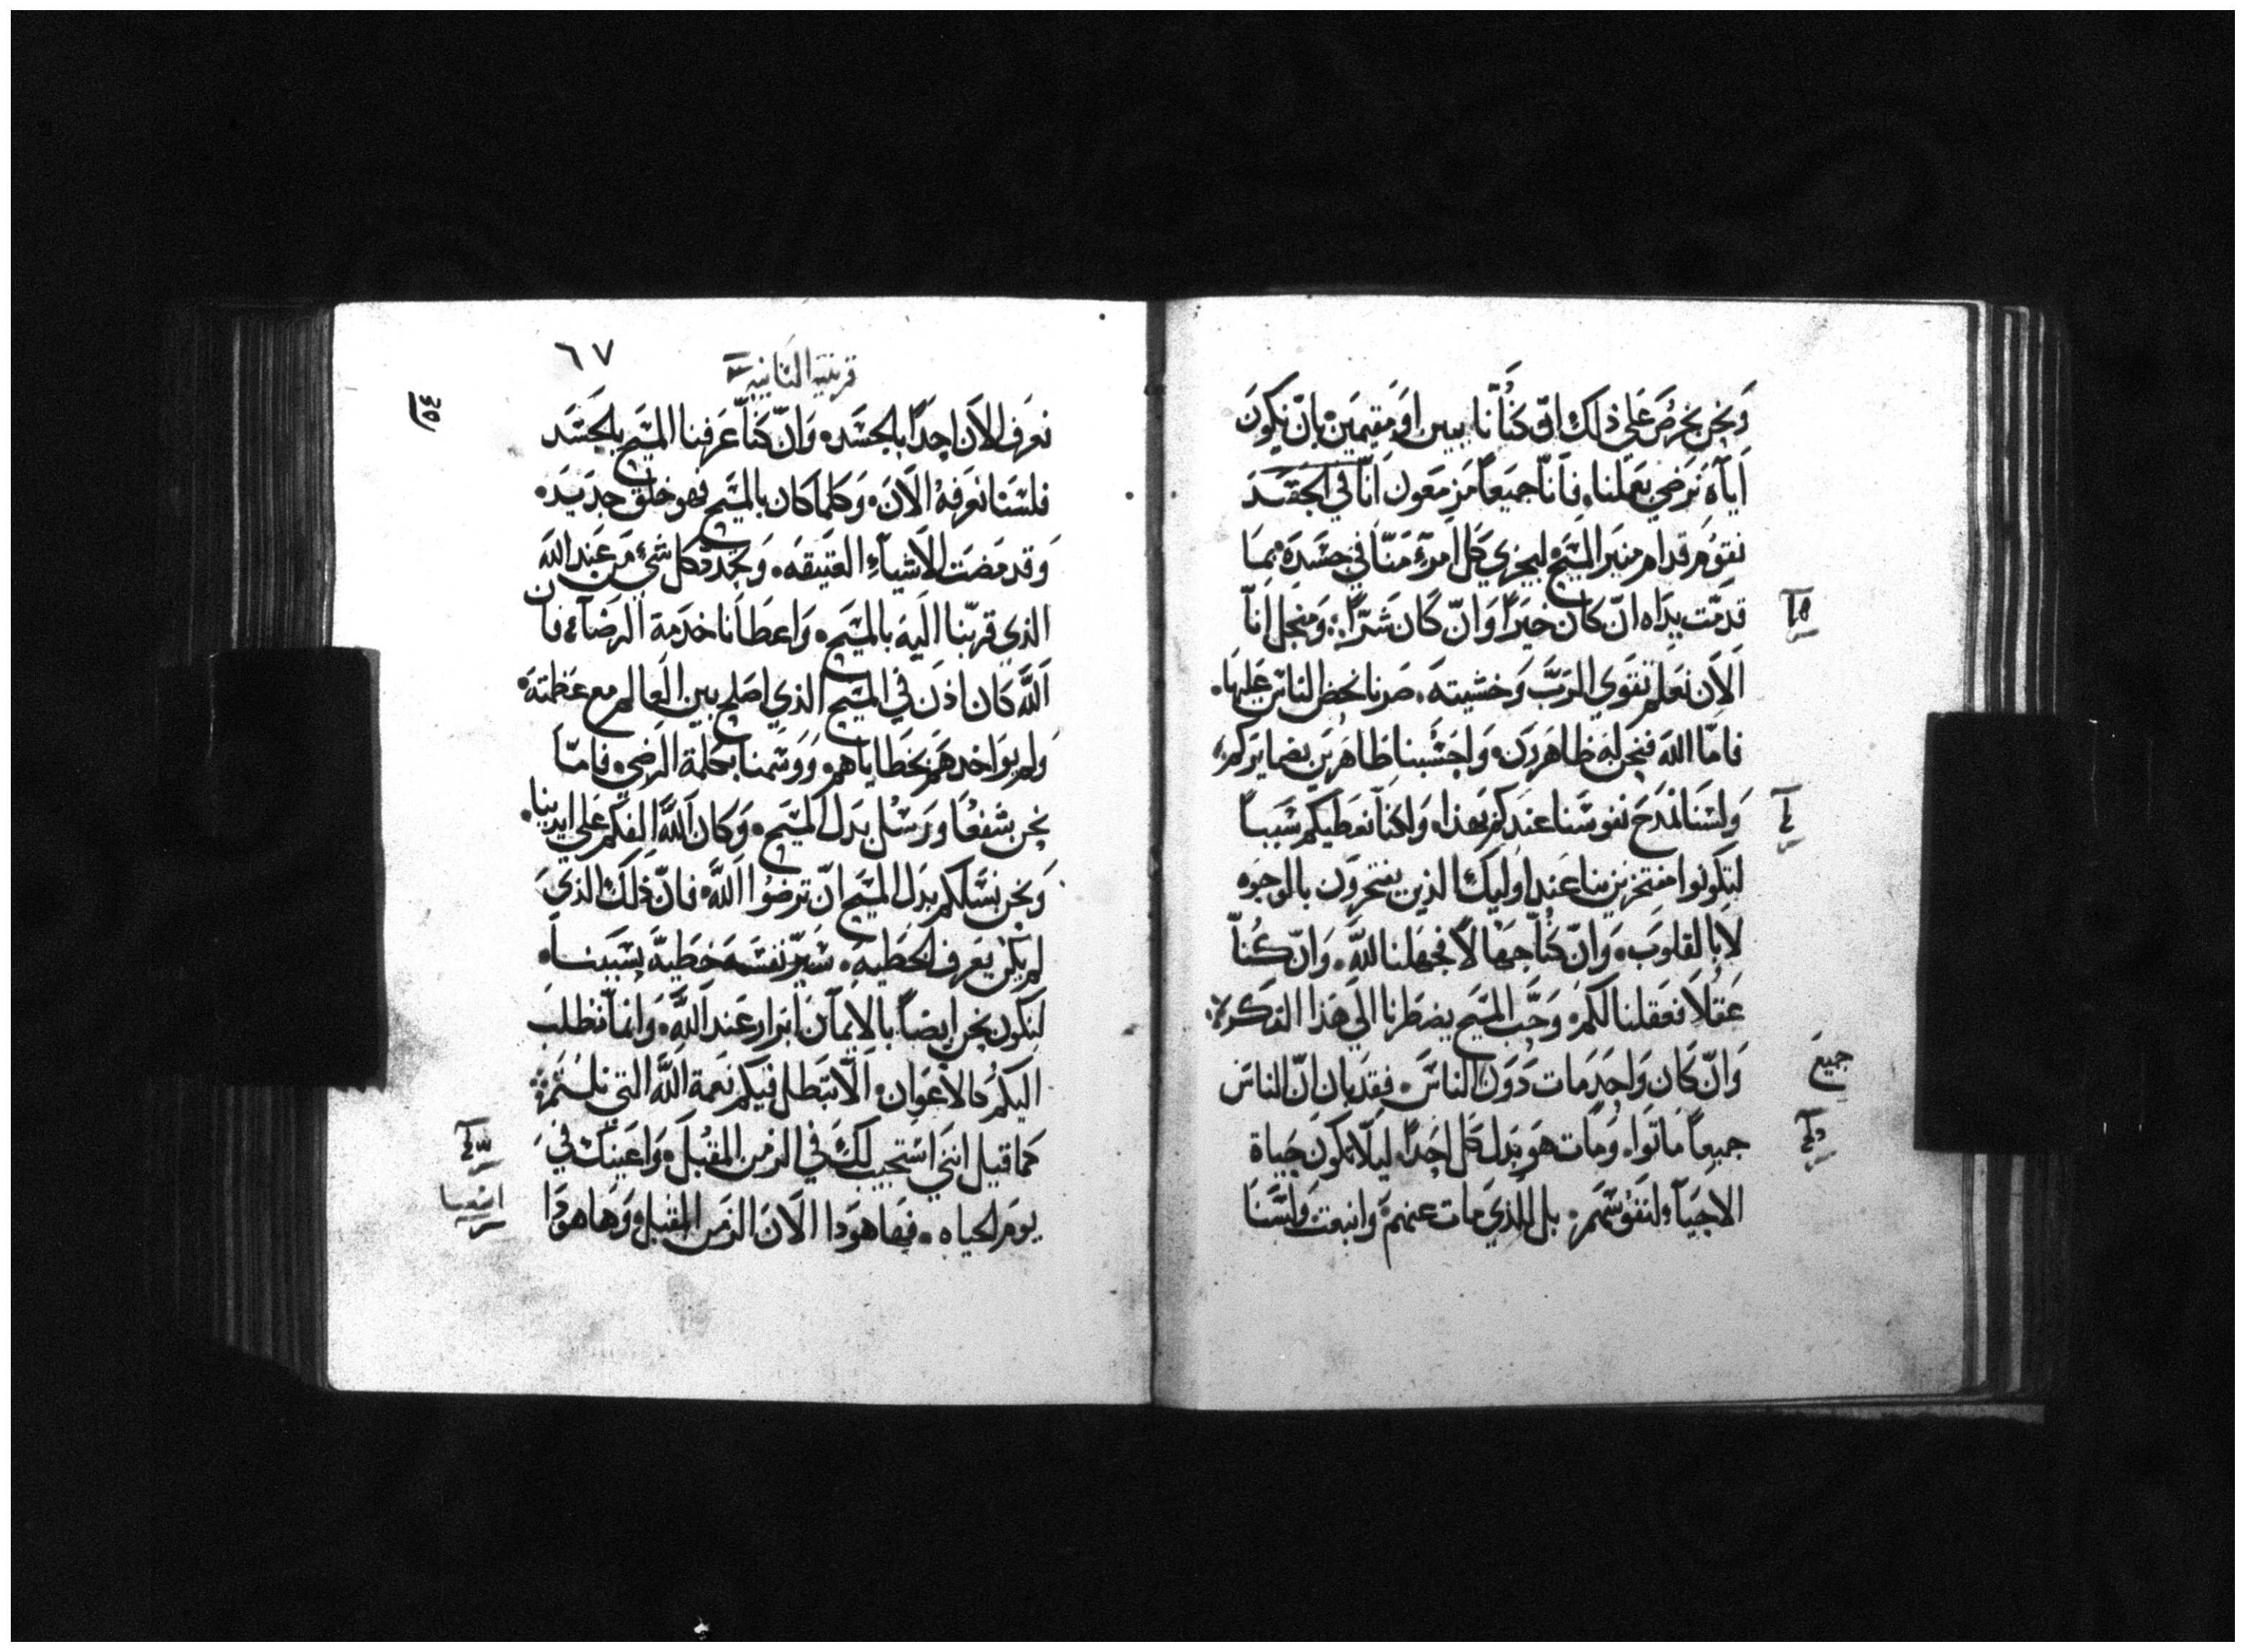 ونحن نحرص على ذلك ان كنا نايين او مقيمين بان نكون
اياه نرضي بعملنا فاننا جميعاً مزمعون انا في الجسد
نقوم قدام منبر المسيح ليجزي كل امرء منا في جسده بما
قدمت يداه ان كان خيراً وان كان شراً ومنجل انا
الان نعلم تقوي الرب وخشيته صرنا نحض الناس عليها
فاما الله فنحن له ظاهرون واحسبنا ظاهرين بضمايركم
ولسنا نمدح نفوسنا عندكم بهذا ولكنا نعطيكم سبباً
لتكونوا مفتخرين بنا عند اوليك الذين يفتخرون بالوجوه
لا بالقلوب وان كنا جهالاً فجهلنا لله وان كنا
عقلا فعقلنا لكم وحب المسيح يضطرنا الى هذا الفكر
وان كان واحد مات دون الناس فقد بان ان الناس
جميع
جميعاً ماتوا ومات هو بدل كل احد ليلا تكون حياة
الاحياء لنفوسهم بل للذي مات عنهم وانبعث ولسنا
٦٧
قرنتيه الثانيه
نعرف الان احداً بالجسد وان كنا عرفنا المسيح بالجسد
فلسنا نعرفه الان وكلما كان بالمسيح فهو خلق جديد
وقد مضت الاشياء العتيقه وتجدد كل شي من عند الله
الذي قربنا اليه بالمسيح واعطانا خدمة الرضاء فان
الله كان اذن في المسيح الذي اصلح بين العالم مع عظمته
ولم يواخدهم بخطاياهم ووسمنا بكلمة الرضي فاما
نحن شفعا ورسل بدل المسيح وكان الله الفكم على ايدينا
ونحن نسلكم بدل المسيح ان ترضوا الله فان ذلك الذي
لم يكن يعرف الخطيه صير نفسه خطية بسببنا
لنكون نحن ايضاً بالايمان ابرار عند الله وانما نطلب
اليكم كالاعوان الا تبطل فيكم نعمة الله التي نلتم
كما قيل انني استجيب لك في الزمن المقبل واعينك في
اشعيا
يوم الحياه فها هوذا الان الزمن المقبل وها هوذا